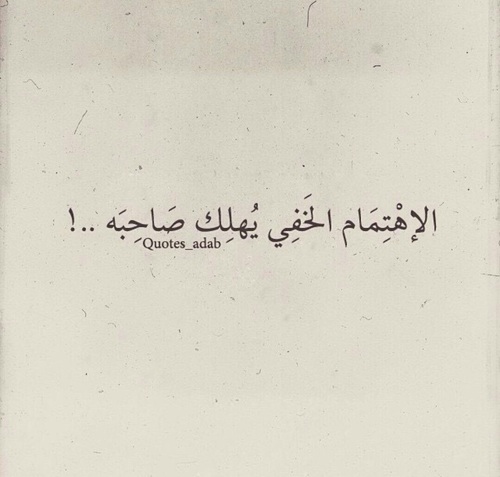 الإهْتِمَام الخَفِي يُهلِك صَاحِبَه ..!
Quotes_adab